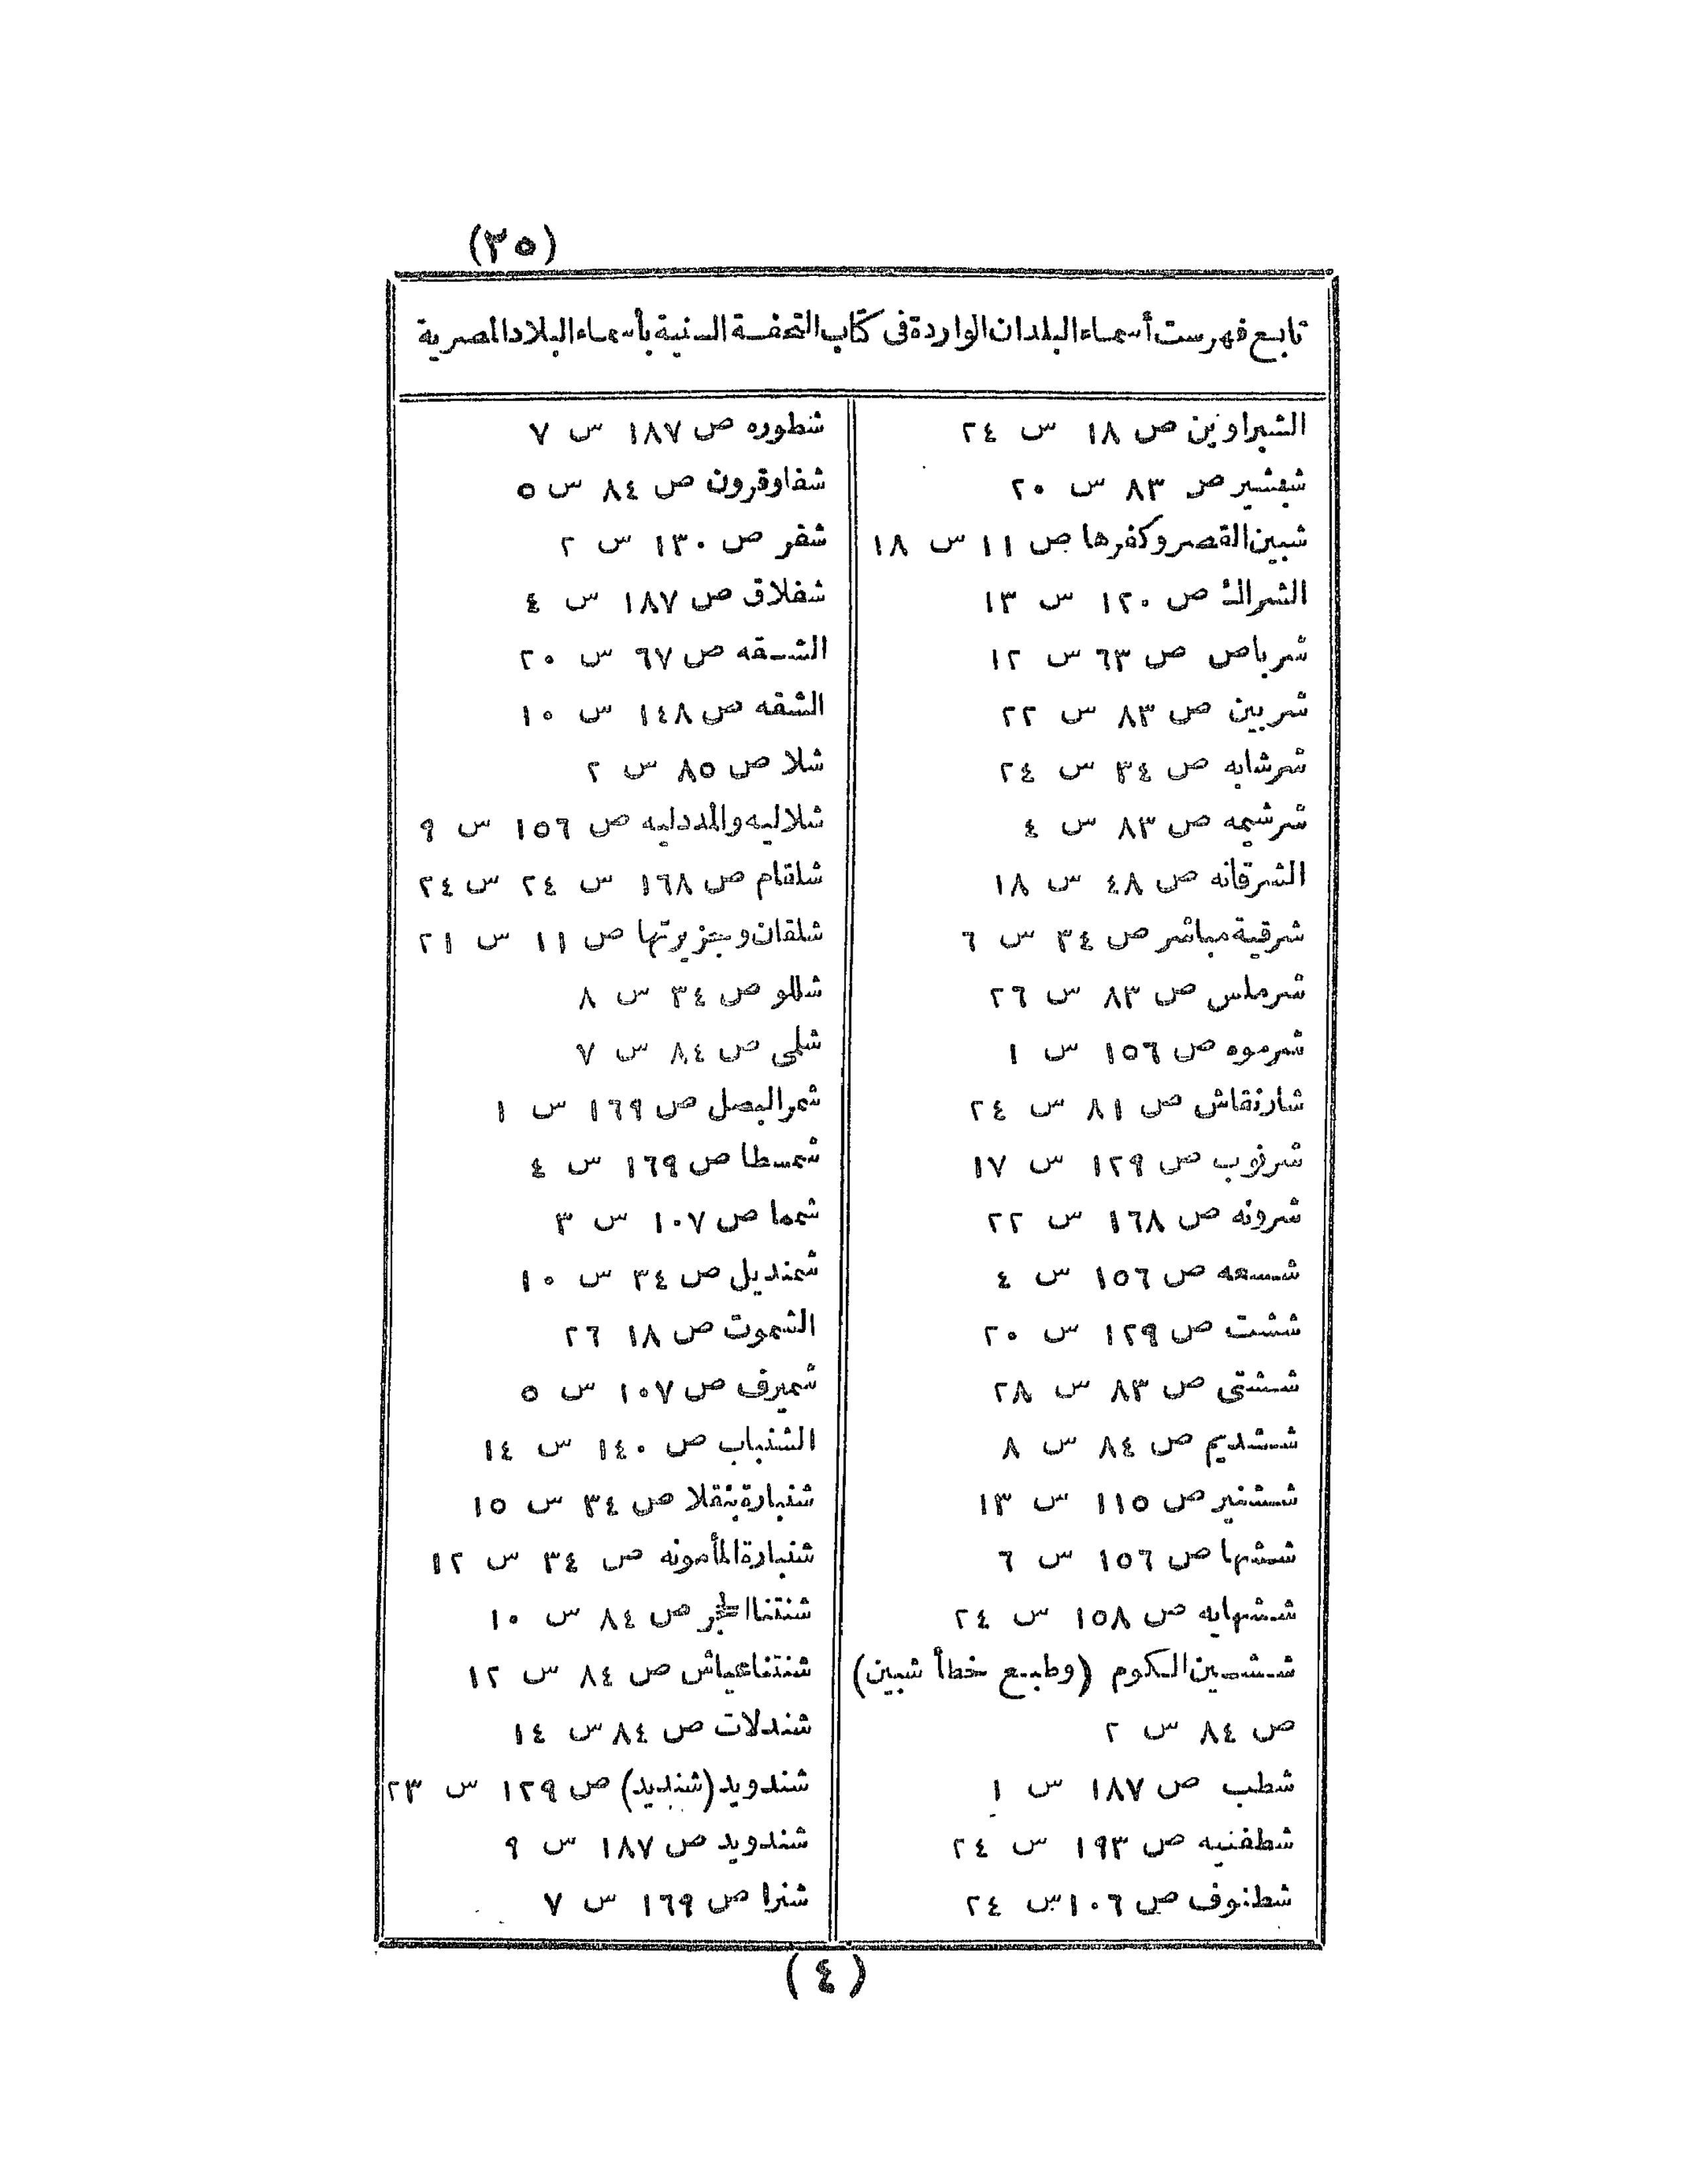 (٣٥)
تابع فهرست أسماء البلدان الواردة فى كتاب التحفة السنية بأسماء البلاد المصرية
الشبراوين ص ١٨ س ٢٤
شبشير ص ٨٣ س ٢٠
شبين القصر وكفرها ص ١١ س ١٨
الشراك ص ١٢٠ س ١٣
شرباص ص ٦٣ س ١٢
شربين ص ٨٣ س ٢٢
شرشابه ص ٣٤ س ٢٤
شرشيمه ص ٨٣ س ٤
الشرقانه ص ٤٨ س ١٨
شرقية مباشر ص ٣٤ س ٦
شرملس ص ٨٣ س ٢٦
شرموه ص ١٥٦ س ١
شارنقاش ص ٨١ س ٢٤
شرنوب ص ١٢٩ س ١٧
شرونه ص ١٦٨ س ٢٢
شسعه ص ١٥٦ س ٤
ششت ص ١٢٩ س ٢٠
ششتى ص ٨٣ س ٢٨
ششديم ص ٨٤ س ٨
ششنير ص ١١٥ س ١٣
ششها ص ١٥٦ س ٦
ششهابه ص ١٥٨ س ٢٤
ششمين الكوم (وطبع خطأ شبين)
ص ٨٤ س ٢
شطب ص ١٨٧ س ١
شطفنيه ص ١٩٣ س ٢٤
شطنوف ص ١٠٦ س ٢٤
شطوره ص ١٨٧ س ٧
شفاوقرون ص ٨٤ س ٥
شفر ص ١٣٠ س ٢
شفلاق ص ١٨٧ س ٤
الشقه ص ٦٧ س ٢٠
الشقه ص ١٤٨ س ١٠
شلا ص ٨٥ س ٢
شلاليه والمددليه ص ١٥٦ س ٩
شلقام ص ١٦٨ س ٢٤ س ٢٤
شلقان وجزيرتها ص ١١ س ٢١
شللو ص ٣٤ س ٨
شلمى ص ٨٤ س ٧
شمر البصل ص ١٦٩ س ١
شمسطا ص ١٦٩ س ٤
شمما ص ١٠٧ س ٣
شمنديل ص ٣٤ س ١٠
الشموت ص ١٨ ٢٦
شميرف ص ١٠٧ س ٥
الشنباب ص ١٤٠ س ١٤
شنبارة بنقلا ص ٣٤ س ١٥
شنبارة المأمونه ص ٣٤ س ١٢
شنتنا الحجر ص ٨٤ س ١٠
شنتنا عياش ص ٨٤ س ١٢
شندلات ص ٨٤ س ١٤
شندويد (شنديد) ص ١٢٩ س ٢٣
شندويد ص ١٨٧ س ٩
شنرا ص ١٦٩ س ٧
(٤)